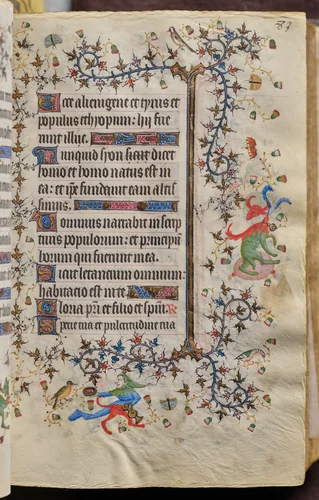 87
Ecce alienigene et tyrus et
populus ethyopum: hij fue
runt illuc.
Nunquid syon sicut dicet
homo et homo natus est in
ea: et ipse fundavit eam altis
simus.
Dominus narrabit in scrip
turis populorum: et principu
horum qui fuerunt in ea.
Sicut letancium omnium:
habitacio est in te.
Gloria pri et filio et spui.
Specie tua et pulcritudine tua